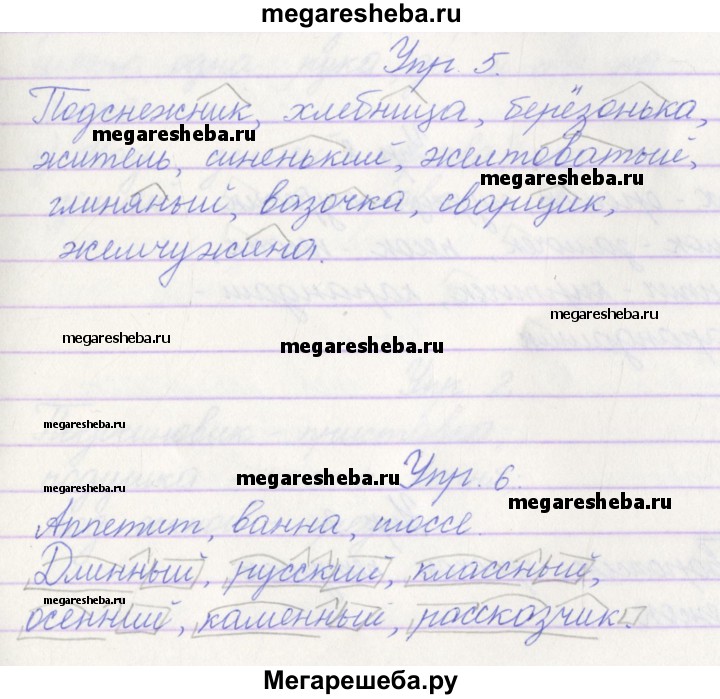 megaresheba.ru
Упр. 5.
Подснежник, хлебница, берёзонька,
megaresheba.ru
житель, синенький, желтоватый,
megaresheba.ru
глиняный, вазочка, сварщик,
жемчужина.
megaresheba.ru
megaresheba.ru
megaresheba.ru
Упр. 6.
megaresheba.ru
megaresheba.ru
megaresheba.ru
Аппетит, ванна, шоссе.
Длинный, русский, классный,
megaresheba.ru
осенний, каменный, рассказчик.
Мегарешеба.ру